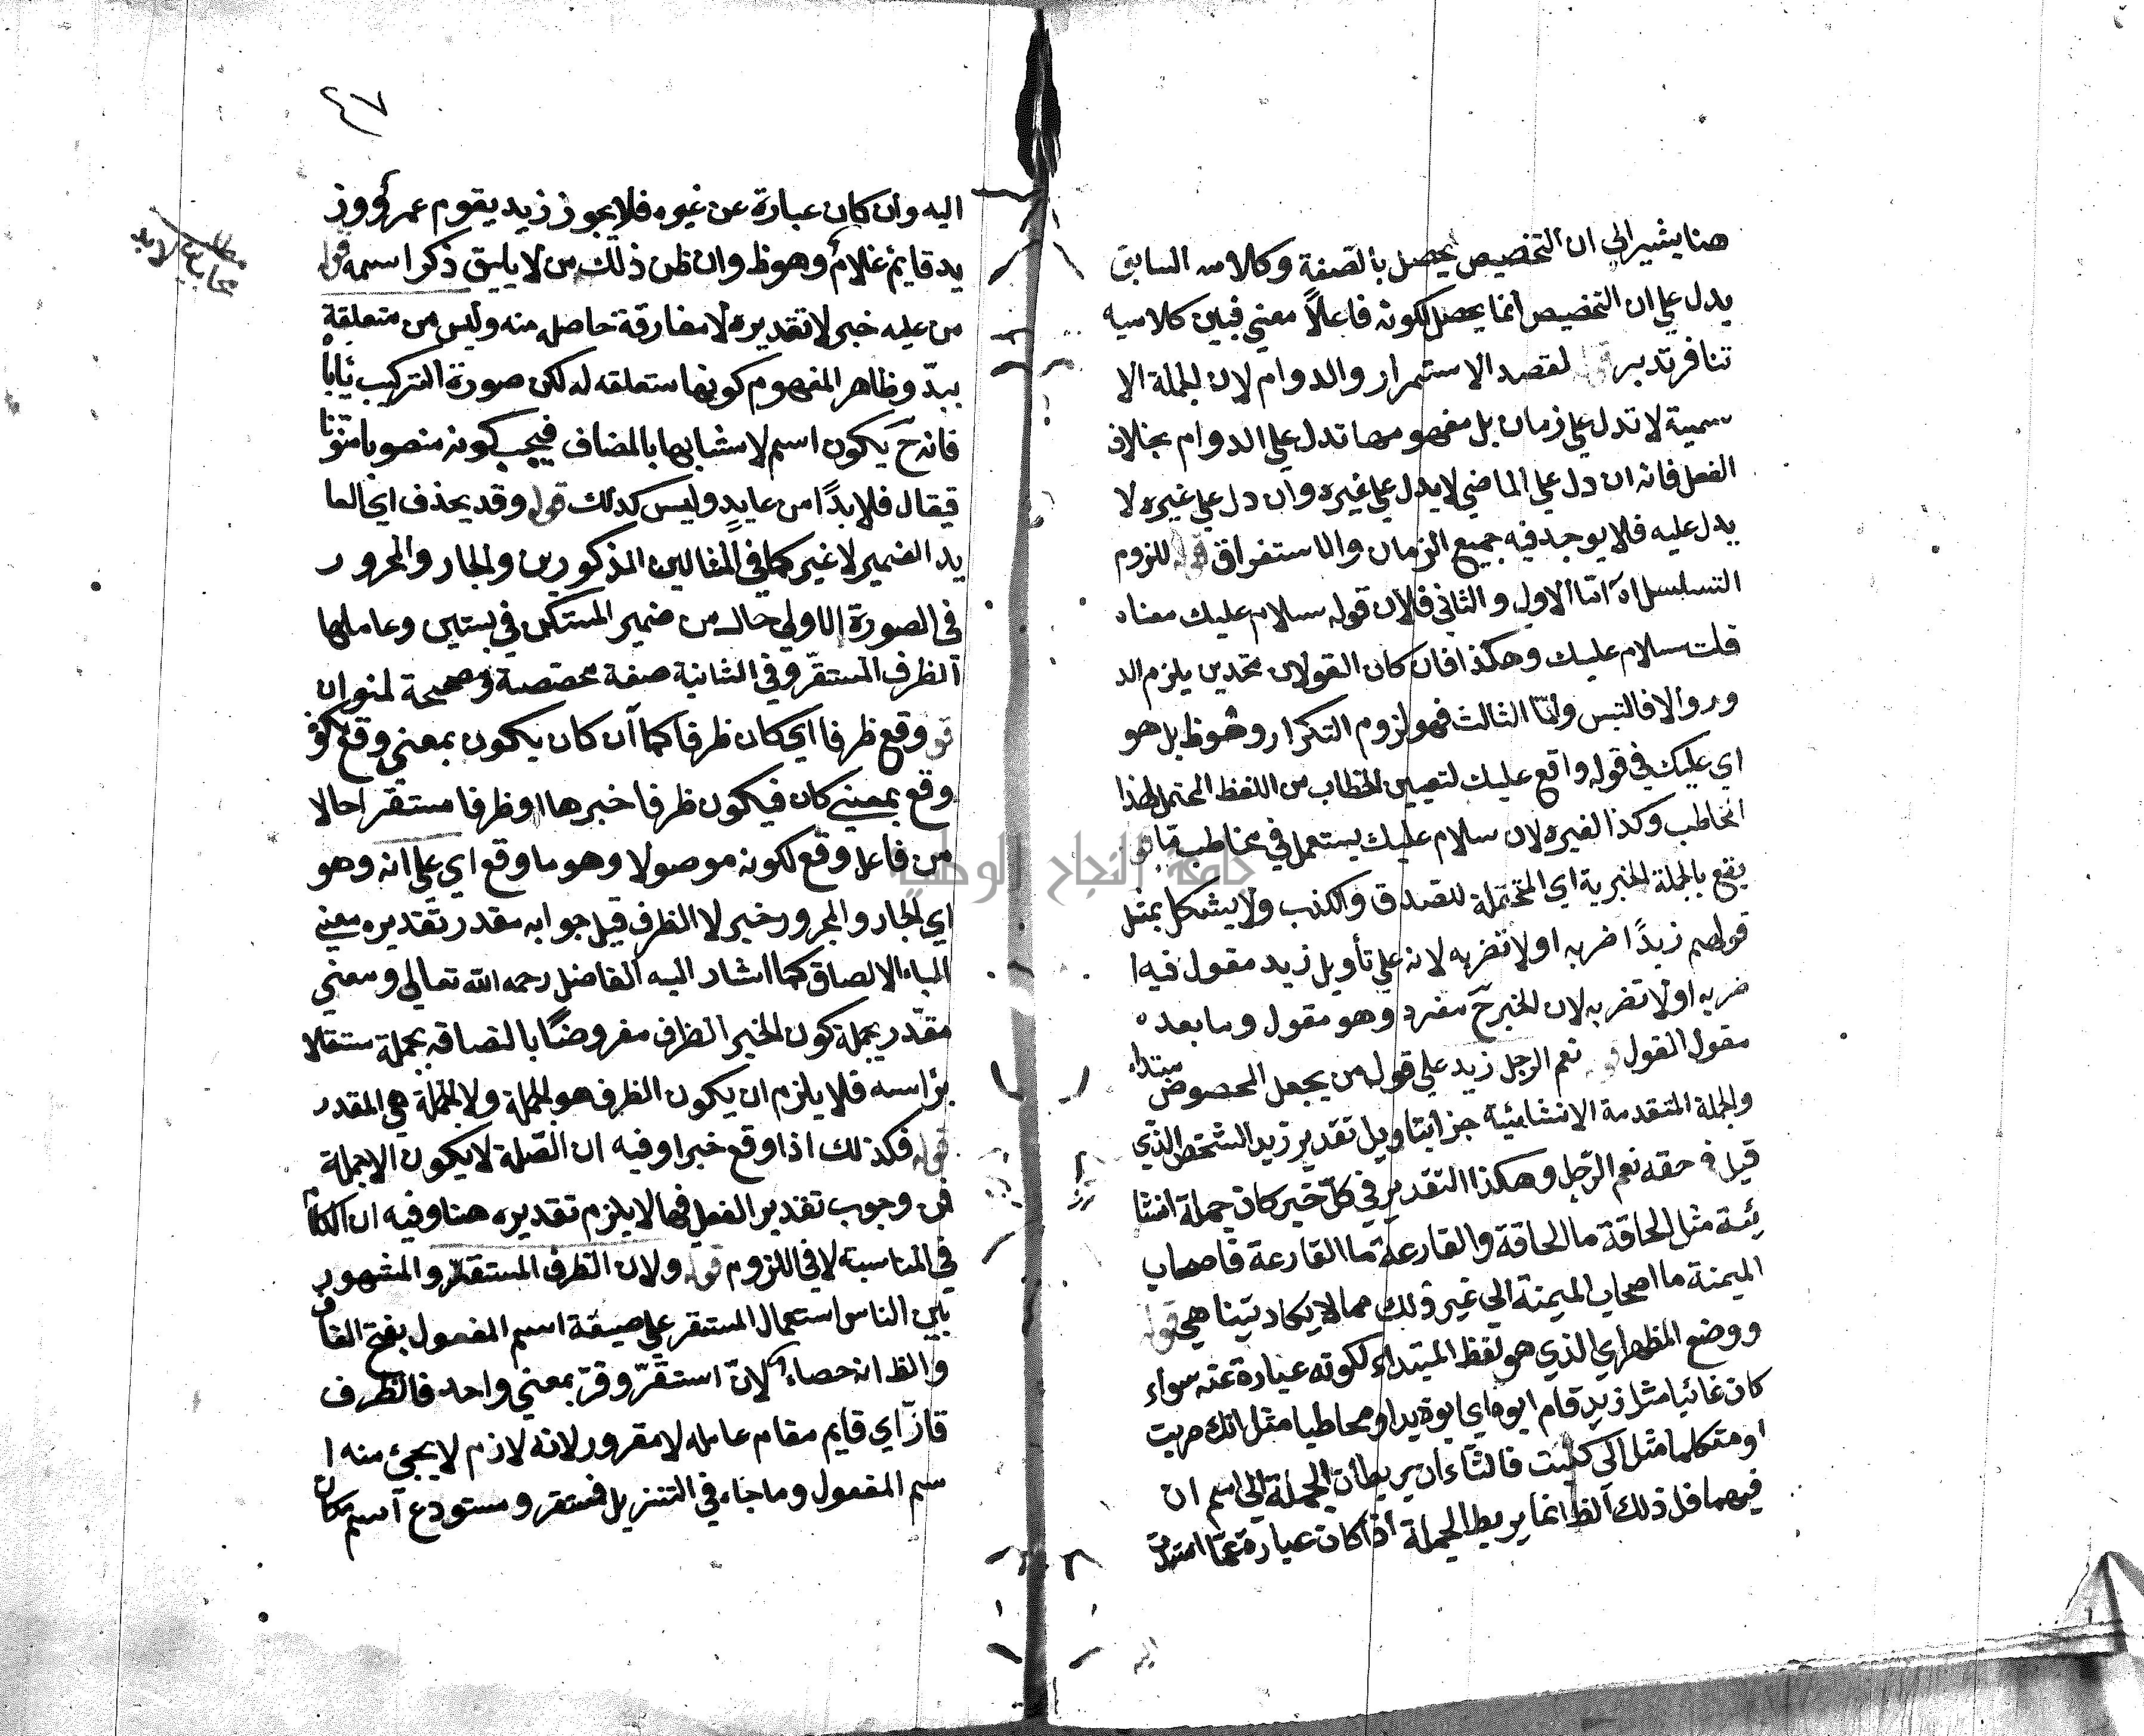 هنا يشير الي ان التخصيص يحصل بالصفة وكلامه السابق
يدل علي ان التخصيص انما يحصل لكونه فاعلاً معني فبين كلاميه
تنافر تدبر قوله لقصد الاستمرار والدوام لان الجملة الا
سمية لا تدل علي زمان بل مفهومها تدل علي الدوام بخلاف
الفعل فانه ان دل علي الماضي لا يدل علي غيره وان دل علي غيره لا
يدل عليه فلا يوجد فيه جميع الزمان والاستغراق قوله للزوم
التسلسل اه اما الاول والثاني فلان قوله سلام عليك معناه
قلت سلام عليك وهكذا فان كان القولان متحدين يلزم الد
ور والا فالتس واما الثالث فهو لزوم التكرار وهو ظ بل هو
اي عليك في قوله واقع عليك لتعيين الخطاب من اللفظ المحتمل لهذا
المخاطب وكذا لغيره لان سلام عليك يستعمل في مخاطب ما قوله
يقع بالجملة الخبرية اي المحتملة للصدق والكذب ولا يشكل بمثل
قولهم زيدًا ضربه او لا تضربه لانه علي تأويل زيد مقول فيه ا
ضربه او لا تضربه لان الخبر ح مفرد وهو مقول وما بعده
مقول القول قوله نعم الرجل زيد علي قول من يجعل المخصوص مبتداء
والجملة المتقدمة الانشائية جزا بتاويل تقدير زيد الشخص الذي
قيل في حقه نعم الرجل وهكذا التقدير في كل خبر كان جملة انشا
ئية مثل الحاقة ما الحاقة والقارعة ما القارعة فاصحاب
الميمنة ما اصحاب الميمنة الي غير ذلك مما لا يكاد يتناهي قوله
ووضع المظهر اي الذي هو لفظ المبتداء لكونه عبارة عنه سواء
كان غائبا مثل زيد قام ابوه اي ابو زيد او مخاطبا مثل انك ضربت
او متكلما مثل اني كتبت فالتاءان يربطان الجملة الي اسم ان
فيهما فل ذلك الظ انما يربط الجملة اذا كان عبارة عما استدت
٤٧
اليه وان كان عبارة عن غيره فلا يجوز زيد يقوم عمرٌو وز
يد قايم غلامٌ وهو ظ وان ظن ذلك من لا يليق ذكر اسمه قوله
من عليه خبر لا تقديره لا مفارقة حاصله منه وليس من متعلقة
ببدّ وظاهر المفهوم كونها متعلقه له لكن صورة التركيب ياباه
فانه ح يكون اسم لا مشابها بالمضاف فيجب كونه منصوبا منونا
فيقال فلا بدًا من عايدٍ وليس كذلك قوله وقد يحذف اي العا
يد الضمير لا غير كما في المثالين المذكورين والجار والمجرور
في الصورة الاولي حال من ضمير المستكن في بستين وعاملها
الظرف المستقر وفي الثانية صفة مخصصة ومصححة لمنوان
قوله وقع ظرفا اي كان ظرفا كما ان كان يكون بمعني وقع يكون
وقع بمعني كان فيكون ظرفا خبرها او ظرفا مستقرا حالا
من فاعل وقع لكونه موصولا وهو ما وقع اي علي انه وهو
اي الجار والمجرور خبر لا الظرف قيل جوابه مقدر تقديره معني
الباء الالصاق كما اشار اليه الفاضل رحمه الله تعالي ومعني
مقدر بجملة كون الخبر الظرف مفروضًا بالتصاقه بجملة مستقلا
براسه فلا يلزم ان يكون الظرف هو الجملة ولا الجملة هي المقدر
قوله فكذلك اذا وقع خبرا وفيه ان الصلة لا يكون الا جملة
فمن وجوب تقدير الفعل فيها لا يلزم تقديره هنا وفيه ان الكلام
في المناسبة لا في اللزوم قوله ولان الظرف المستقر والمشهور
بين الناس استعمال المستقر علي صيغة اسم المفعول بفتح القاف
والظ انه خطاء لانّ استقرّ وقرّ بمعني واحد فالظرف
قارّ اي قايم مقام عامله لا مقرور لانه لازم لا يجئ منه ا
سم المفعول وما جاء في التنزيل فمستقر ومستودع اسم مكان